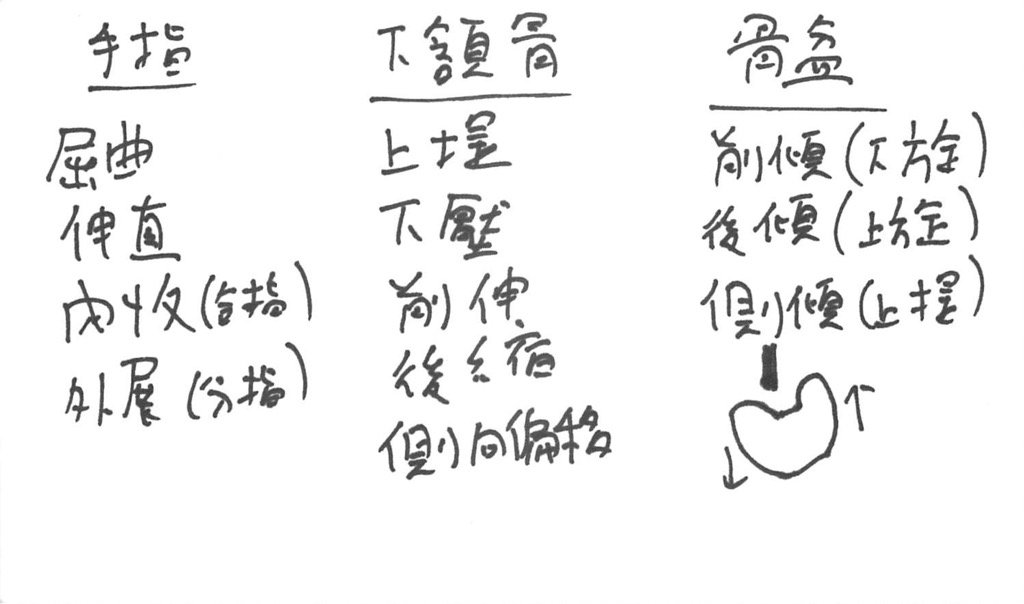 手指
屈曲
伸直
內收(合指)
外展(分指)
下頷骨
上提
下壓
前伸
後縮
側向偏移
骨盆
前傾(下旋)
後傾(上旋)
側傾(上提)